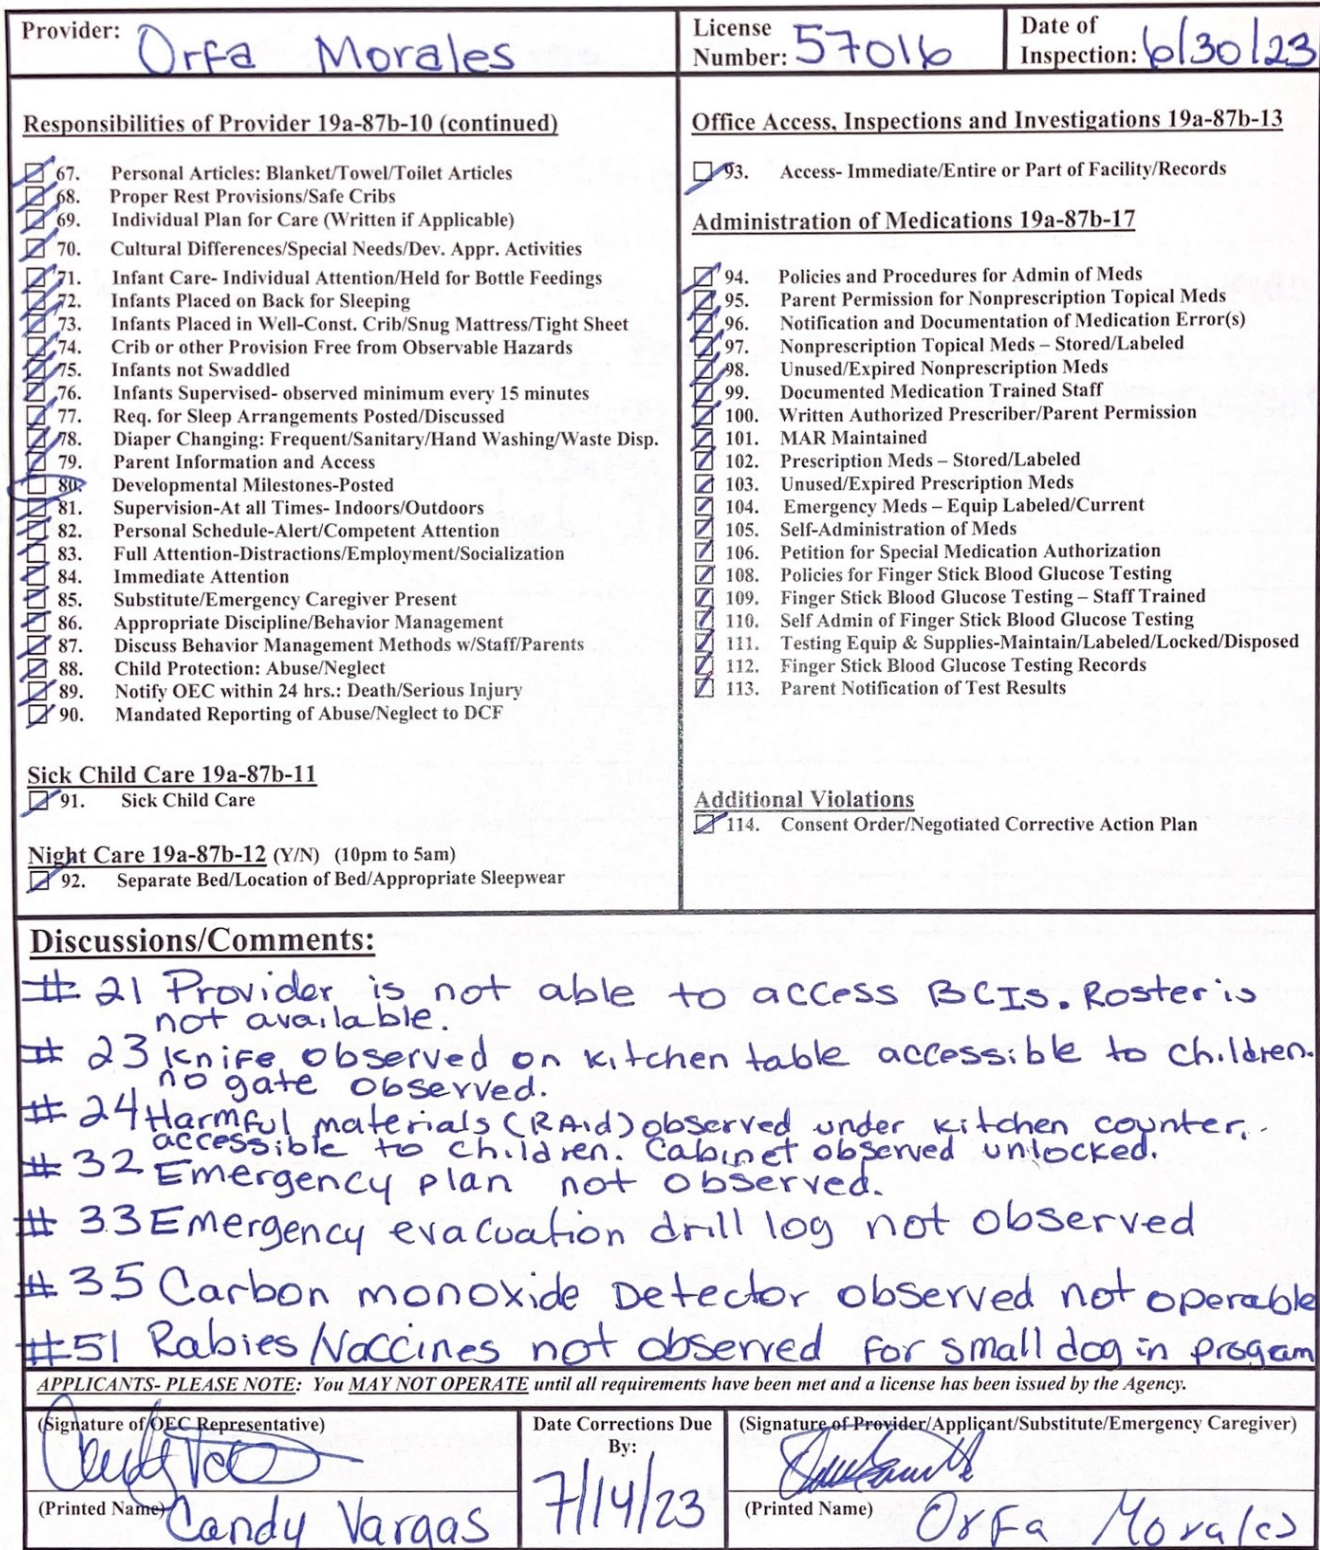 Provider: Orfa Morales
License Number: 57016
Date of Inspection: 6/30/23
Responsibilities of Provider 19a-87b-10 (continued)
67. Personal Articles: Blanket/Towel/Toilet Articles
68. Proper Rest Provisions/Safe Cribs
69. Individual Plan for Care (Written if Applicable)
70. Cultural Differences/Special Needs/Dev. Appr. Activities
71. Infant Care- Individual Attention/Held for Bottle Feedings
72. Infants Placed on Back for Sleeping
73. Infants Placed in Well-Const. Crib/Snug Mattress/Tight Sheet
74. Crib or other Provision Free from Observable Hazards
75. Infants not Swaddled
76. Infants Supervised- observed minimum every 15 minutes
77. Req. for Sleep Arrangements Posted/Discussed
78. Diaper Changing: Frequent/Sanitary/Hand Washing/Waste Disp.
79. Parent Information and Access
80. Developmental Milestones-Posted
81. Supervision-At all Times- Indoors/Outdoors
82. Personal Schedule-Alert/Competent Attention
83. Full Attention-Distractions/Employment/Socialization
84. Immediate Attention
85. Substitute/Emergency Caregiver Present
86. Appropriate Discipline/Behavior Management
87. Discuss Behavior Management Methods w/Staff/Parents
88. Child Protection: Abuse/Neglect
89. Notify OEC within 24 hrs.: Death/Serious Injury
90. Mandated Reporting of Abuse/Neglect to DCF
Sick Child Care 19a-87b-11
91. Sick Child Care
Night Care 19a-87b-12 (Y/N) (10pm to 5am)
92. Separate Bed/Location of Bed/Appropriate Sleepwear
Office Access, Inspections and Investigations 19a-87b-13
93. Access- Immediate/Entire or Part of Facility/Records
Administration of Medications 19a-87b-17
94. Policies and Procedures for Admin of Meds
95. Parent Permission for Nonprescription Topical Meds
96. Notification and Documentation of Medication Error(s)
97. Nonprescription Topical Meds – Stored/Labeled
98. Unused/Expired Nonprescription Meds
99. Documented Medication Trained Staff
100. Written Authorized Prescriber/Parent Permission
101. MAR Maintained
102. Prescription Meds – Stored/Labeled
103. Unused/Expired Prescription Meds
104. Emergency Meds – Equip Labeled/Current
105. Self-Administration of Meds
106. Petition for Special Medication Authorization
108. Policies for Finger Stick Blood Glucose Testing
109. Finger Stick Blood Glucose Testing – Staff Trained
110. Self Admin of Finger Stick Blood Glucose Testing
111. Testing Equip & Supplies-Maintain/Labeled/Locked/Disposed
112. Finger Stick Blood Glucose Testing Records
113. Parent Notification of Test Results
Additional Violations
114. Consent Order/Negotiated Corrective Action Plan
Discussions/Comments:
# 21 Provider is not able to access BCIS. Roster is
not available.
# 23 Knife observed on kitchen table accessible to children.
no gate observed.
# 24 Harmful materials (RAid) observed under kitchen counter.
accessible to children. Cabinet observed unlocked.
# 32 Emergency plan not observed.
# 33 Emergency evacuation drill log not observed
# 35 Carbon monoxide Detector observed not operable
#51 Rabies/Vaccines not observed for small dog in progam
APPLICANTS- PLEASE NOTE: You MAY NOT OPERATE until all requirements have been met and a license has been issued by the Agency.
(Signature of OEC Representative)
(Printed Name) Candy Vargas
Date Corrections Due
By:
7/14/23
(Signature of Provider/Applicant/Substitute/Emergency Caregiver)
(Printed Name) Orfa Morales